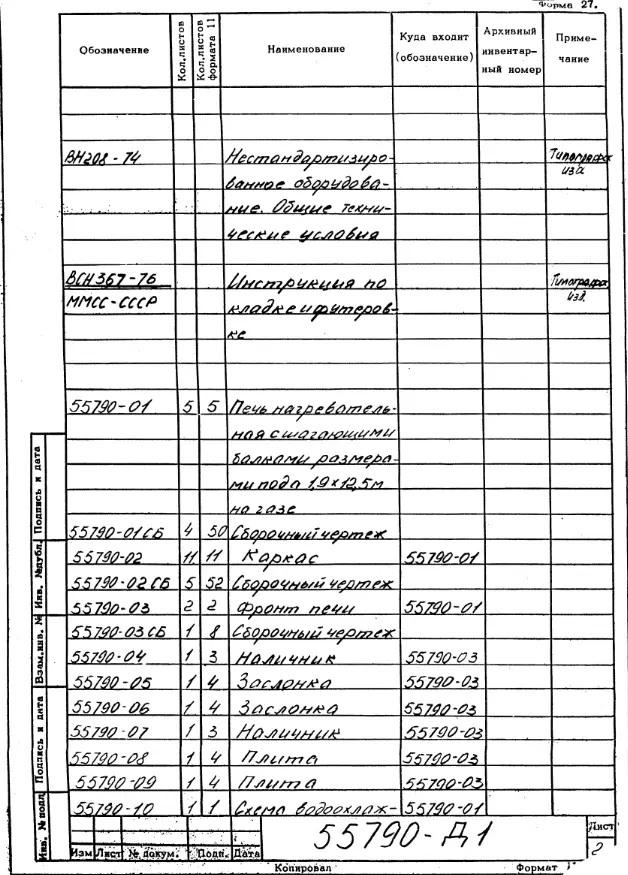 Форма 27.
Обозначение Кол.листов Кол.листов формата 11 Наименование Куда входит (обозначение) Архивный инвентар-ный номер Приме-чание
ВН208-74 Нестандартизиро-
ванное оборудова-
ние. Общие техни-
ческие условия
ВСН367-76 Инструкция по
ММСС-СССР кладке и футеров-
ке
55790-01 5 5 Печь нагреватель-
ная с шагающими
балками размера-
ми пода 1,9×12,5м
на газе
55790-01СБ 4 50 Сборочный чертеж
55790-02 11 11 Каркас 55790-01
55790-02СБ 5 52 Сборочный чертеж
55790-03 2 2 Фронт печи 55790-01
55790-03СБ 1 8 Сборочный чертеж
55790-04 1 3 Наличник 55790-03
55790-05 1 4 Заслонка 55790-03
55790-06 1 4 Заслонка 55790-03
55790-07 1 3 Наличник 55790-03
55790-08 1 4 Плита 55790-03
55790-09 1 4 Плита 55790-03
55790-10 1 1 Схема водоохлаж- 55790-01
Инв. № подл. Подпись и дата Взам.инв. № Инв. №дубл. Подпись и дата
Изм Лист № докум. Подп. Дата
55790-Д1
Лист
2
Копировал Формат